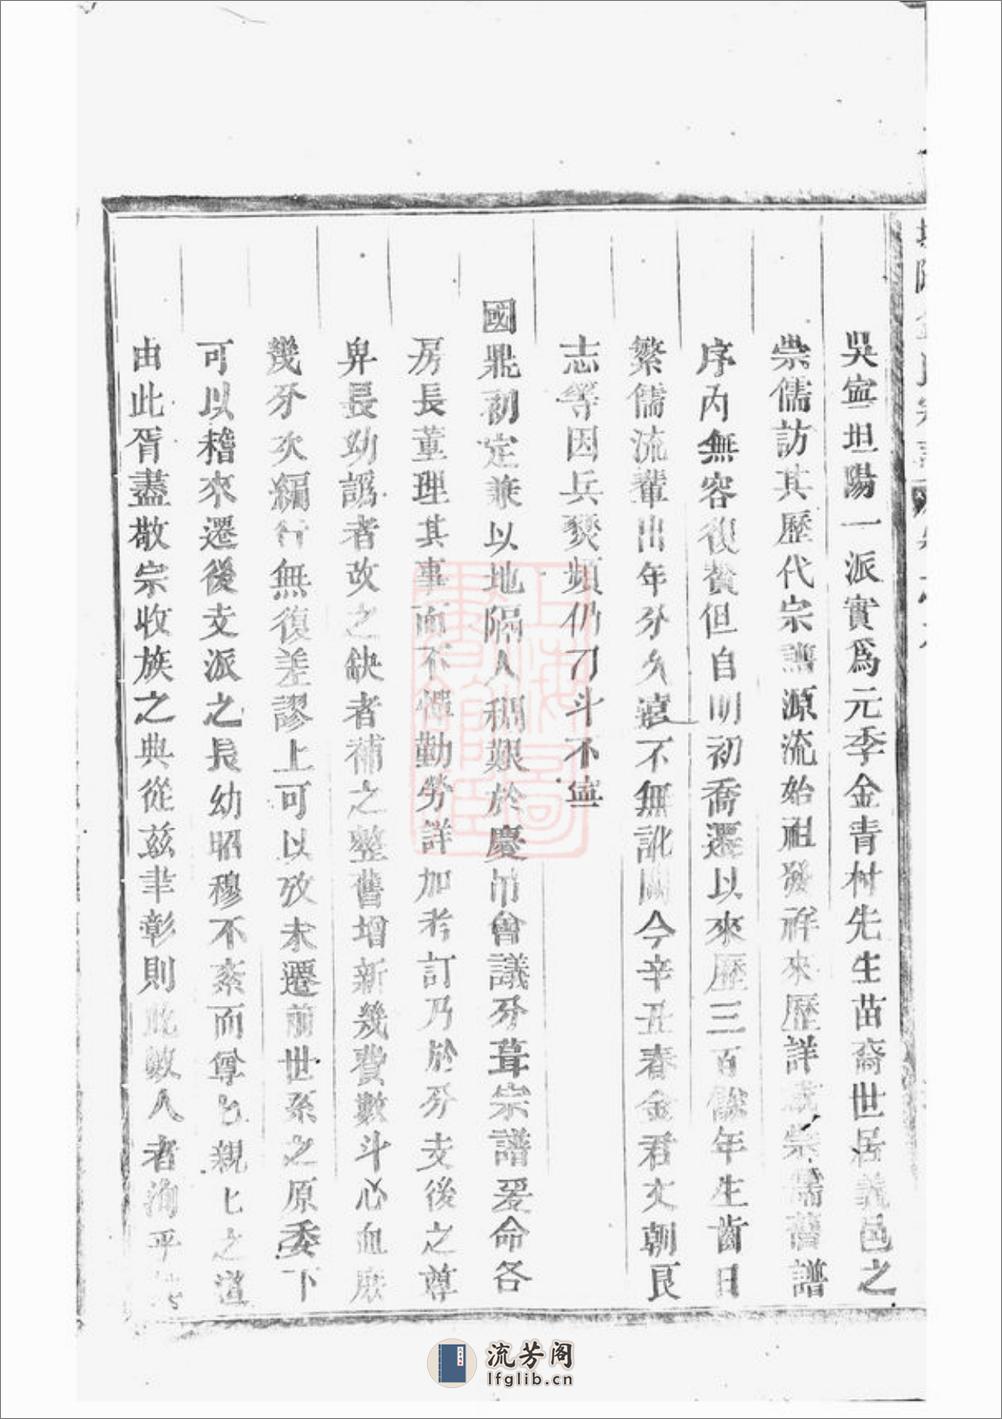 吳寧坦陽一派實爲元季金青村先生苗裔世居義邑之
崇儒訪其歷代宗譜源流始祖發祥來歷詳載崇儒舊譜
序內無容復贅但自明初喬遷以來歷三百餘年生齒日
繁儒流輩出年歹久遠不無訛闕今辛丑春金君文朝良
志等因兵燹頻仍刀斗不寧
國鼎初定兼以地隔人稠艱於慶吊會議歹葺宗譜爰命各
房長董理其事而不憚勤勞詳加考訂乃於歹支後之尊
卑長幼譌者改之缺者補之整舊增新幾費數斗心血庶
幾歹次編行無復差謬上可以攷未遷前世系之原委下
可以稽來遷後支派之長幼昭穆不紊而尊匕親匕之道
由此胥盡敬宗收族之典從兹聿彰則此數人者洵平
上海圖書館藏
流芳阁
lfglib.cn